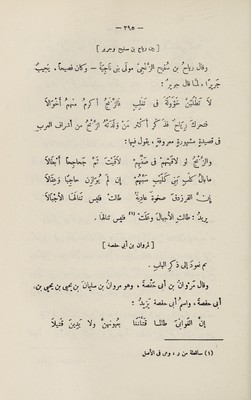 — ٣٩٥ —
[ بين رياح بن سنيح وجرير ]
وقال رياح بن سُنَيْح الزَّنْجِىّ مولى بنى ناجِيَة — وكان فصيحاً ، يجيبُ
جَريرًا ، لمَّا قال جرير :
لا تَطْلُبَنَّ خُؤُولَةً فى تَغْلِبٍ فالزَّنْجُ أكرمُ منهمُ أخْوالَا
فتحرَّك رِياحٌ فذكر أكثرَ مَنْ ولَدَتْهُ الزَّنْجُ من أشراف العرب
فى قصيدةٍ مشهورةٍ معروفةٍ ، يقول فيها :
والزَّنْجُ لو لاقيتَهم فى صَفِّهِمْ لاقَيْتَ ثَمَّ جَحَاجِحاً أبْطَالَا
ما بالُ كلبِ بَنى كُلَيْبٍ سَبَّهُمْ إن لم يُوازِنْ حاجِبًا وعِقَالَا
إنَّ الفرزدقَ صَخْرَةٌ عاديّةٌ طالتْ فليس تنالُها الأجْبَالَا
يريدُ : طالت الأجبالَ وعَلَتْ (١) فليس تنالها .
[ لمروان بن أبى حفصة ]
ثم نعودُ إلى ذكر الباب .
وقال مَرْوان بن أبى حَفْصة ، وهو مروان بن سليمان بن يحيى بن يحيى بن
أبى حفصة ، واسم أبى حفصة يَزيدُ :
إنَّ الغَوَانِىَ طالما قَتَلْنَنَا بعُيونهنَّ ولا يَدِينَ قَتِيلَا
(١) ساقطة من ر ، وس فى الأصل